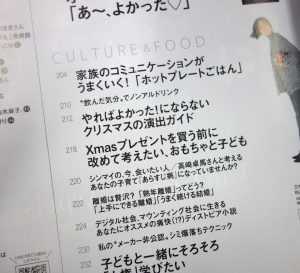 「あ〜、よかった♡」
CULTURE & FOOD
204 家族のコミュニケーションが
うまくいく！「ホットプレートごはん」
210 “飲んだ気分”でノンアルドリンク
212 やればよかった！にならない
クリスマスの演出ガイド
218 Xmasプレゼントを買う前に
改めて考えたい、おもちゃと子ども
220 シンマイの、今、会いたい人／高崎卓馬さんと考える
あなたの子育て「あらすじ病」になっていませんか？
222 離婚は贅沢？「熟年離婚」ってどう？
「上手にできる離婚」「うまく続ける結婚」
224 デジタル社会、マウンティング社会に生きる
あなたにオススメの痛快（!?）ディストピア小説
230 私の“メーカー非公認。シミ爆落ちテクニック
232 子どもと一緒にそろそろ
学びたい